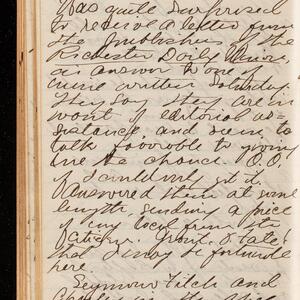 Was quite surprised
to receive a letter from
the publishers of the
Rochester Daily Union,
as answer to one of
mine written Saturday.
They say they are in
want of editorial as-
sistance, and seem to
talk favorable to giving
me the chance. O.O.
if I could only get it.
answered them at some
length, sending a piece
of my local from the
Citizen. Grant, O fate!
that I may be fortunate
here.
Seymour Fitch and